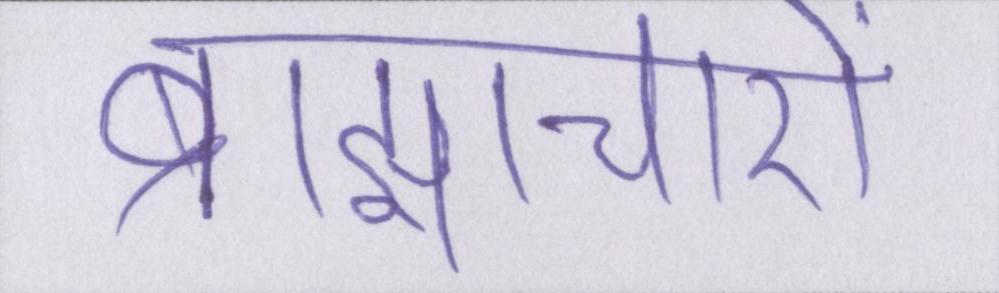 ब्राह्माचारों